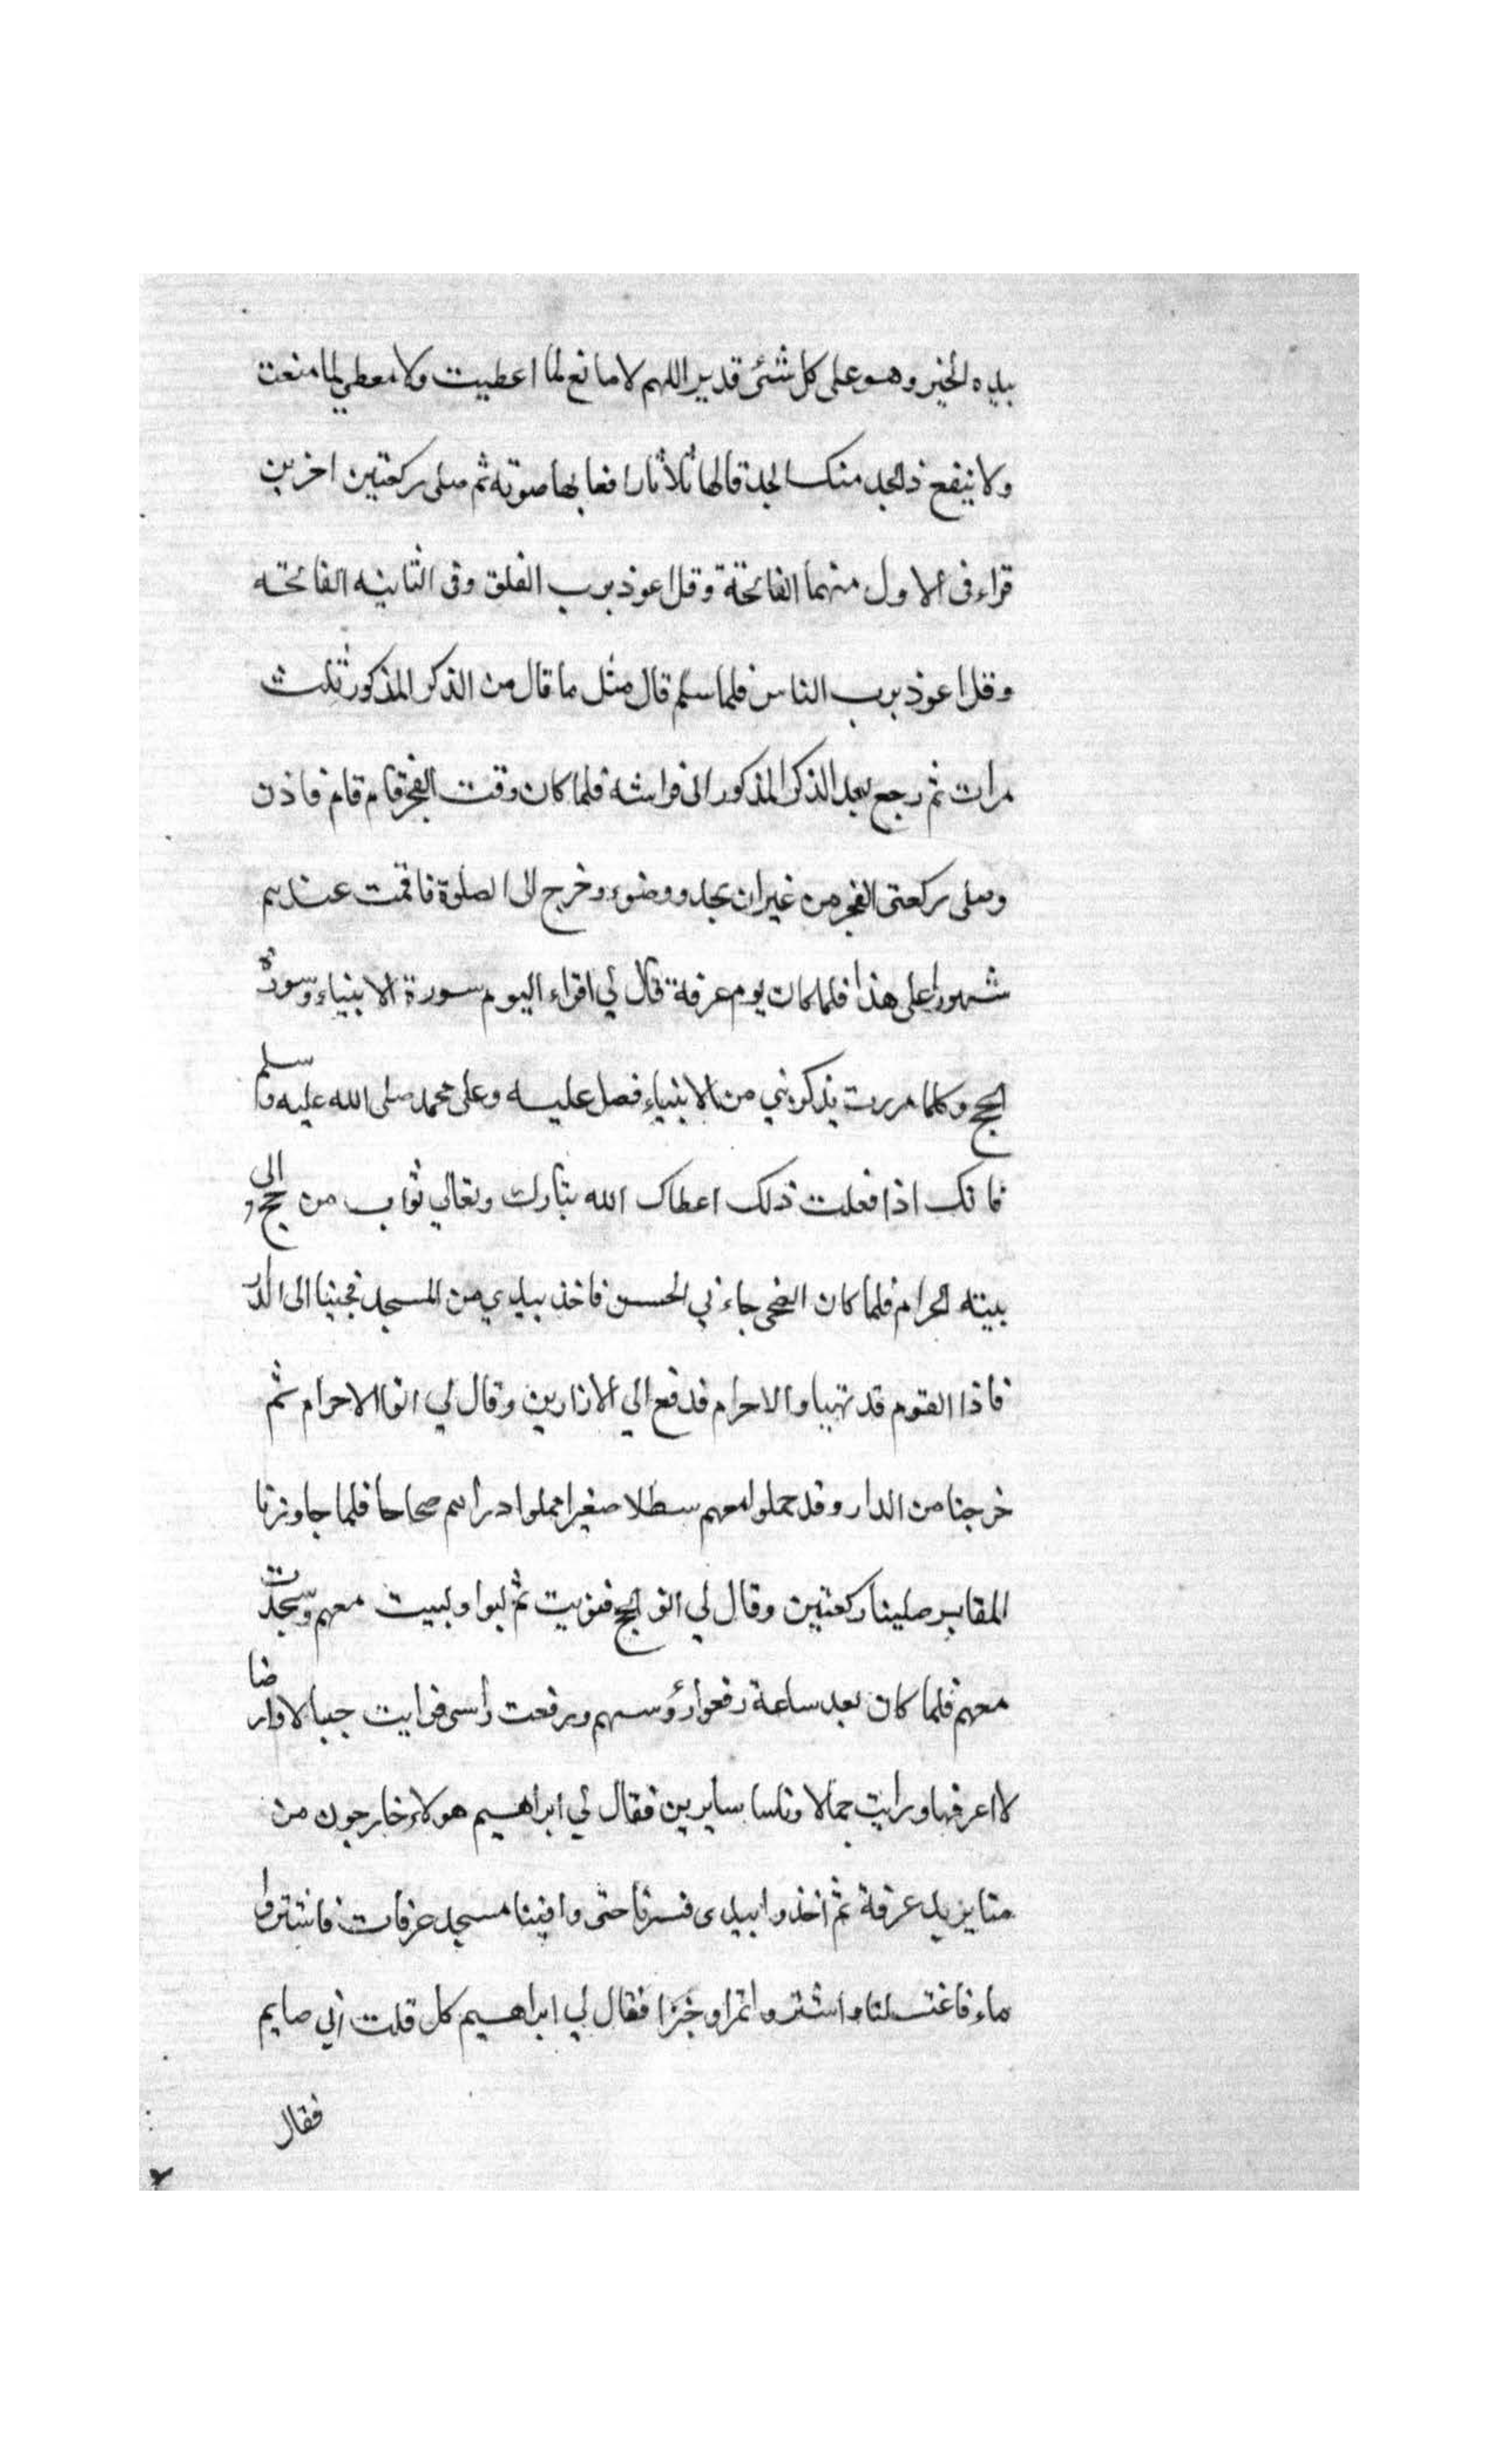 بيده الخير وهو على كل شئ قدير اللهم لا مانع لما اعطيت ولا معطي لما منعت
ولا ينفع ذا الجد منك الجد قالها ثلاثا رافعا بها صوته ثم صلى ركعتين اخريين
قراء فى الاول منهما الفاتحة وقل اعوذ برب الفلق وفى الثانيه الفاتحته
وقل اعوذ برب الناس فلما سلم قال مثل ما قال من الذكر المذكور ثلث
مرات ثم رجع بعد الذكر المذكور الى فراشه فلما كان وقت الفجر قام قام فاذن
وصلى ركعتى الفجر من غير ان يجدد وضوء وخرج الى الصلوة فاقمت عندهم
شهورا على هذا فلما كان يوم عرفة قال لي اقراء اليوم سورة الانبياء وسورة
الحج وكلما مررت بذكر نبي من الانبياء فصل عليه وعلى محمد صلى الله عليه وا سلم
فانك اذا فعلت ذلك اعطاك الله تبارك وتعالي ثواب من حج الى
بيته الحرام فلما كان الضحى جاءني الحسن فاخذ بيدي من المسجد فجينا الى الدار
فاذا القوم قد تهياوا الاحرام فدفع الي الازارين وقال لي انوا الاحرام ثم
خرجنا من الدار وقد حملوا معهم سطلا صغيرا مملوا دراهم صحاحا فلما جاوزنا
المقابر صلينا ركعتين وقال لي انو الحج فنويت ثم لبوا ولبيت معهم وسجدت
معهم فلما كان بعد ساعة رفعوا رؤسهم ورفعت راسى فرايت جبالا وارضا
لا اعرفها ورايت جمالا وناسا سايرين فقال لي ابراهيم هولاء خارجون من
منا يريد عرفة ثم اخذوا بيدى فسرنا حتى وافينا مسجد عرفات فاشتروا
ماء فاغتسلنا واشتروا تمرا وخبزا فقال لي ابراهيم كل قلت اني صايم
فقال